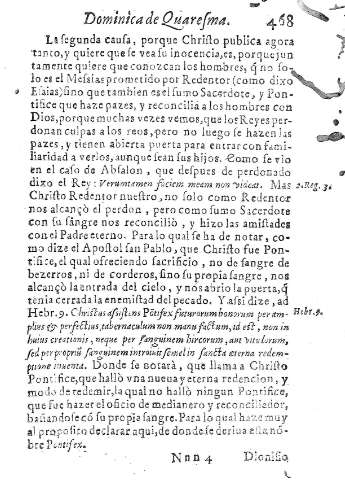 Dominica de Quaresma. 468
La segunda causa, porque Christo publica agora
tanto, y quiere que se vea su inocencia, es, porque jun
tamente quiere que conozcan los hombres, q̃ no so-
lo es el Messias prometido por Redentor (como dixo
Esaias) sino que tambien es el sumo Sacerdote, y Pon-
tifice que haze pazes, y reconcilia a los hombres con
Dios, porque muchas vezes vemos, que los Reyes per-
donan culpas a los reos, pero no luego se hazen las
pazes, y tienen abierta puerta para entrar con fami-
liaridad a verlos, aunque sean sus hijos. Como se vio
en el caso de Absalon, que despues de perdonado
dixo el Rey: Veruntamen faciem meam non videat. Mas
Christo Redentor nuestro, no solo como Redentor
nos alcançò el perdon, pero como sumo Sacerdote
con su sangre nos reconciliò, y hizo las amistades
con el Padre eterno. Para lo qual se ha de notar, co-
mo dize el Apostol san Pablo, que Christo fue Pon-
tifice, el qual ofreciendo sacrificio, no de sangre de
bezerros, ni de corderos, sino su propia sangre, nos
alcançò la entrada del cielo, y nos abrio la puerta, q̃
tenia cerrada la enemistad del pecado. Y assi dize, ad
Hebr. 9. Christus assistens Põtifex futurorum bonorum per am-
plius & perfectius tabernaculum non manu factum, id est, non
huius creationis, neque per sanguinem hircorum, aut vitulorum,
sed per propriũ sanguinem introiuit semel in sancta eterna redem-
ptione inuenta. Donde se notarà, que llama a Christo
Pontifice, que hallò vna nueua y eterna redencion, y
modo de redemir, la qual no hallò ningun Pontifice,
que fue hazer el oficio de medianero y reconciliador,
bañandose cõ su propia sangre. Para lo qual haze muy
al proposito declarar aqui, de donde se deriua este nõ-
bre Pontifex.
Nnn 4 Dionisio
2. Reg. 3.
Hebr. 9.